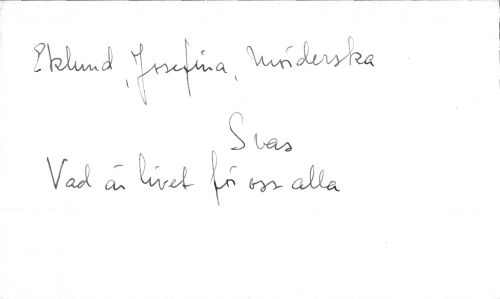 Eklund, Josefina, Mörderska
Svas
Vad är livet för oss alla